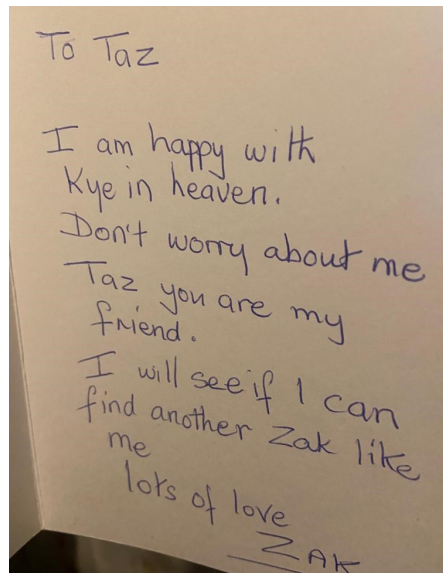 To Taz
I am happy with
Kye in heaven.
Don't worry about me
Taz you are my
friend.
I will see if I can
find another Zak like
me
lots of love
ZAK